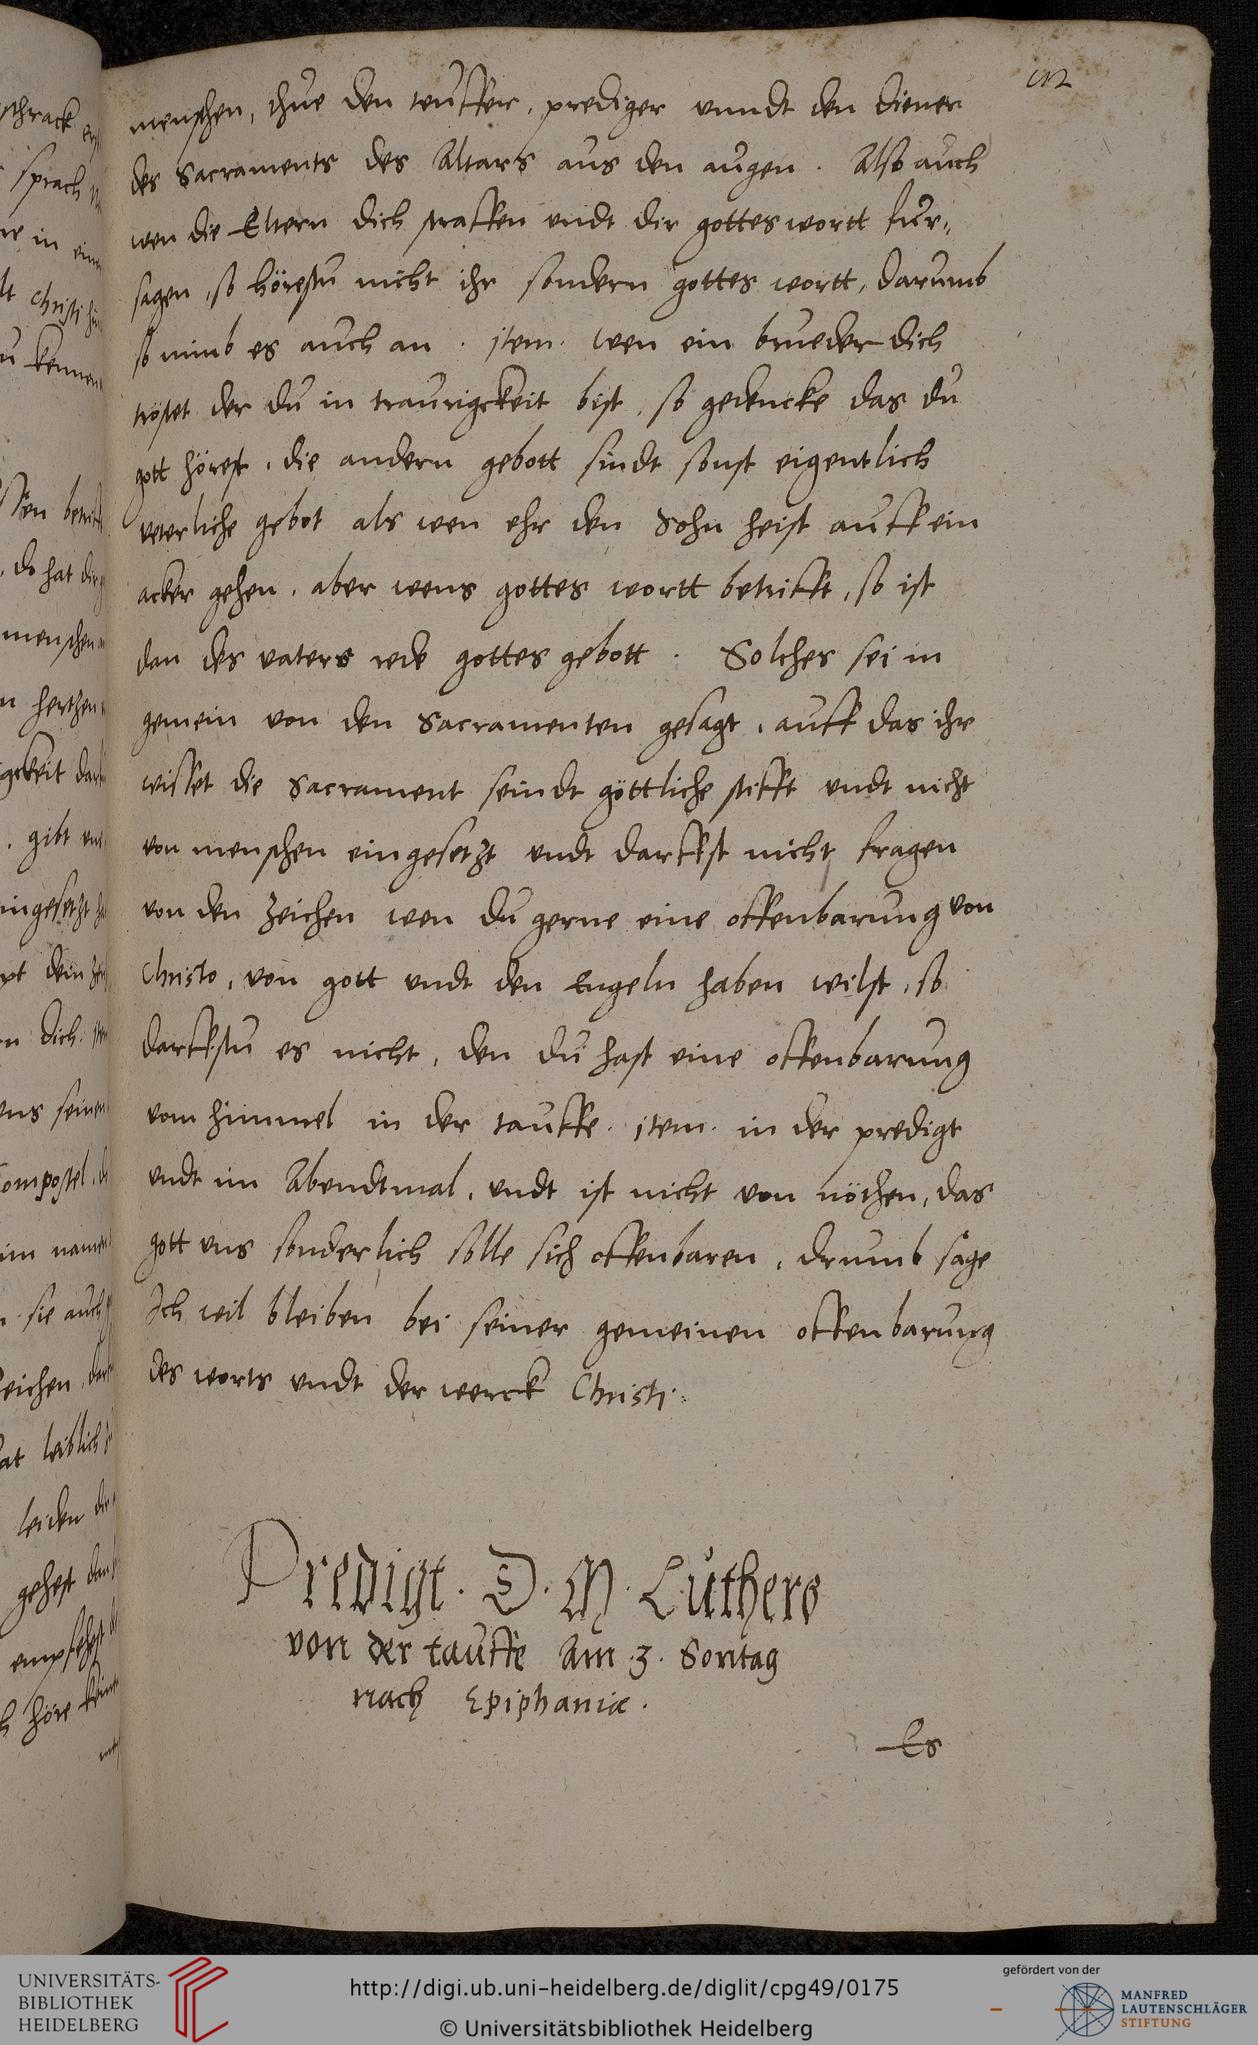 menschen, thue den teuffer, prediger unndt den diener
des Sacraments des Altars aus den augen. Also auch
wen die Eltern dich straffen undt dir gottes wortt fur„
sagen, so hörestu nicht ihr sondern gottes wortt, darumb
so nimb es auch an. item. wen ein brueder dich
tröstet der du in traurigckeit bist, so gedencke das du
gott hörest, die andern gebott sindt sonst eigentlich
veterliche gebot als wen ehr den Sohn heist auff ein
acker gehen, aber wens gottes wortt betrifft, so ist
dan des vaters rede gottes gebott. Solches sei in
gemein von den Sacramenten gesagt, auff das ihr
wisset die Sacrament seindt göttliche stifft undt nicht
von menschen eingesetzt undt darffst nicht fragen
von den zeichen wen du gerne eine offenbarung von
Christo, von gott undt den Engeln haben wilst, so
darffstu es nicht, den du hast eine offenbarung
vom himmel in der tauffe. item. in der predigt
undt im Abendtmal, undt ist nicht von nöthen, das
gott uns sonderlich solle sich offenbaren, drumb sage
Ich wil bleiben bei seiner gemeinen offenbarung
des worts undt der werck Christi.
Predigt. D. M. Luthers
von der tauffe Am .3. Sontag
nach Epiphaniæ.
Es
UNIVERSITÄTS-
BIBLIOTHEK
HEIDELBERG
http://digi.ub.uni-heidelberg.de/diglit/cpg49/0175
© Universitätsbibliothek Heidelberg
gefördert von der
MANFRED
LAUTENSCHLÄGER
STIFTUNG